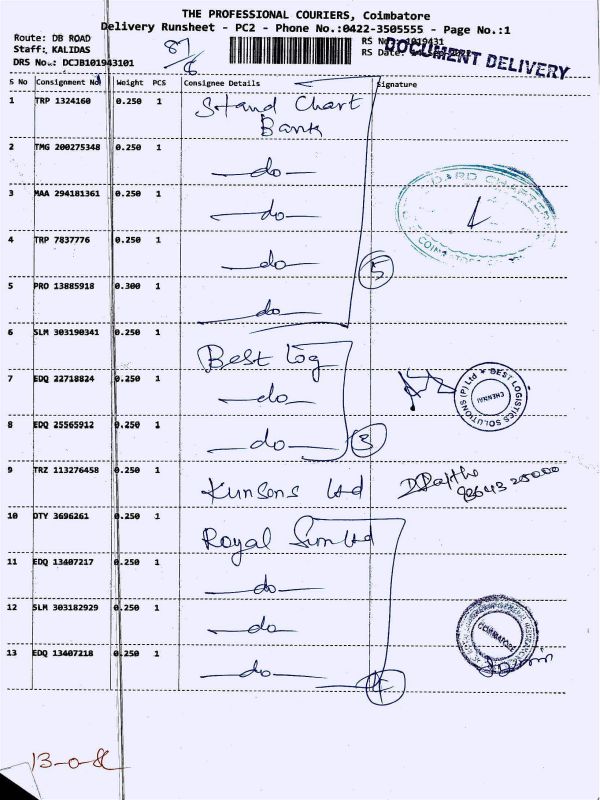 THE PROFESSIONAL COURIERS, Coimbatore
Delivery Runsheet - PC2 - Phone No.:0422-3505555 - Page No.:1
Route: DB ROAD
Staff: KALIDAS
DRS No.: DCJB101943101
RS No: 1019431
RS Date:
DOCUMENT DELIVERY
S No Consignment No Weight PCS Consignee Details Signature
1 TRP 1324160 0.250 1 Stand Chart Bank
2 TMG 200275348 0.250 1 -do-
3 MAA 294181361 0.250 1 -do-
4 TRP 7837776 0.250 1 -do-
5 PRO 13885918 0.300 1 -do-
5
6 SLM 303190341 0.250 1 Best Log
7 EDQ 22718824 0.250 1 -do-
BEST LOGISTICS SOLUTIONS (P) Ltd
CHENNAI
8 EDQ 25565912 0.250 1 -do-
3
9 TRZ 113276458 0.250 1 Kunsons Ltd
10 DTY 3696261 0.250 1 Royal Sun Ltd
11 EDQ 13407217 0.250 1 -do-
12 SLM 303182929 0.250 1 -do-
COIMBATORE
13 EDQ 13407218 0.250 1 -do-
4
13-0-